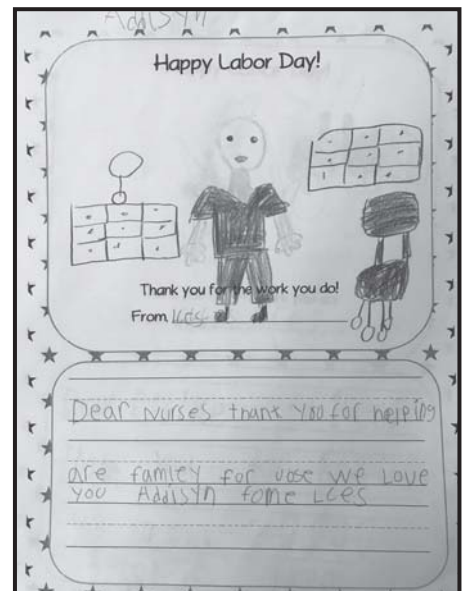 Addisyn
Happy Labor Day!
Thank you for the work you do!
From
Dear Nurses thank you for helping
are famley for uose we Love
you Addisyn fome LCES